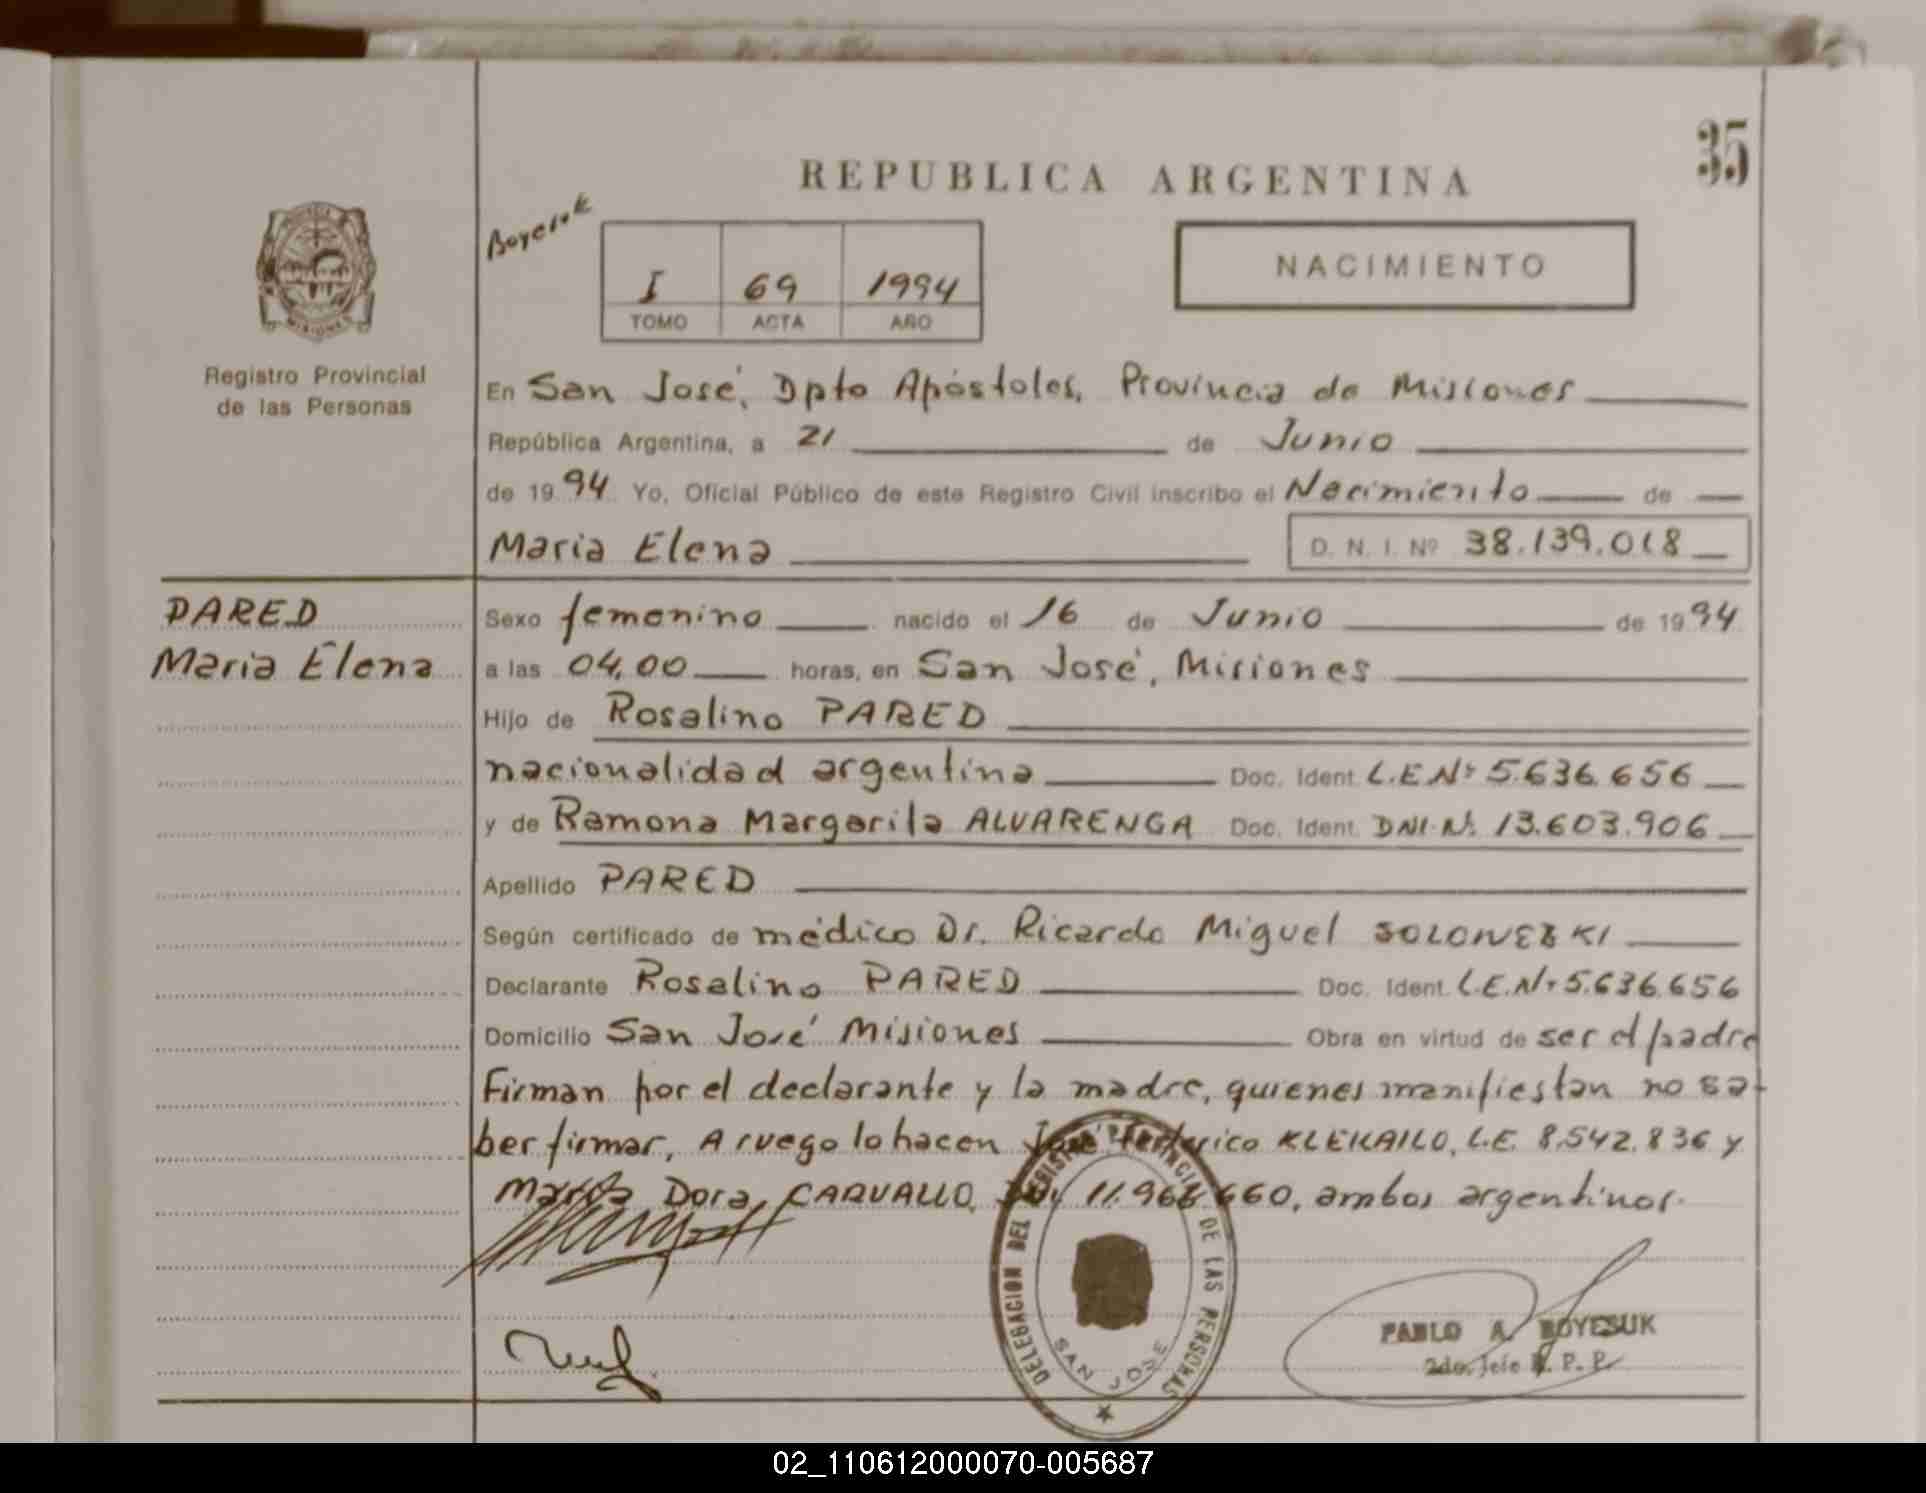 35
REPUBLICA ARGENTINA
Boyesuk
I 69 1994
TOMO ACTA AÑO
NACIMIENTO
MISIONES
Registro Provincial
de las Personas
En San José, Dpto Apóstoles, Provincia de Misiones
República Argentina, a 21 de Junio
de 1994 Yo, Oficial Público de este Registro Civil inscribo el Nacimiento de
Maria Elena D. N. I. Nº 38.139.018
PARED
Maria Elena
Sexo femenino nacido el 16 de Junio de 1994
a las 04,00 horas, en San José, Misiones
Hijo de Rosalino PARED
nacionalidad argentina Doc. Ident. L.E.Nº 5.636.656
y de Ramona Margarita ALVARENGA Doc. Ident. DNI.Nº 13.603.906
Apellido PARED
Según certificado de médico Dr. Ricardo Miguel SOLONEZKI
Declarante Rosalino PARED Doc. Ident. L.E.Nº 5.636.656
Domicilio San José Misiones Obra en virtud de ser el padre
Firman por el declarante y la madre, quienes manifiestan no sa-
ber firmar, A ruego lo hacen José Federico KLEKAILO, L.E. 8.542.836 y
Dora CARVALLO, 11.966.660, ambos argentinos.
DELEGACION DEL REGISTRO PROVINCIAL DE LAS PERSONAS
SAN JOSE
PABLO A. BOYESUK
2do. Jefe R. P. P.
02_110612000070-005687